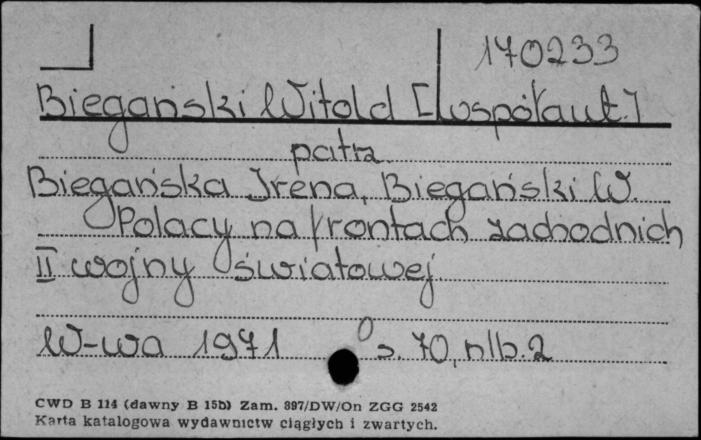 170233
Biegański Witold [współaut.]
patrz
Biegańska Irena, Biegański W.
Polacy na frontach zachodnich
II wojny światowej
W-wa 1971 8° s. 70, nlb. 2
CWD B 114 (dawny B 15b) Zam. 897/DW/On ZGG 2542
Karta katalogowa wydawnictw ciągłych i zwartych.